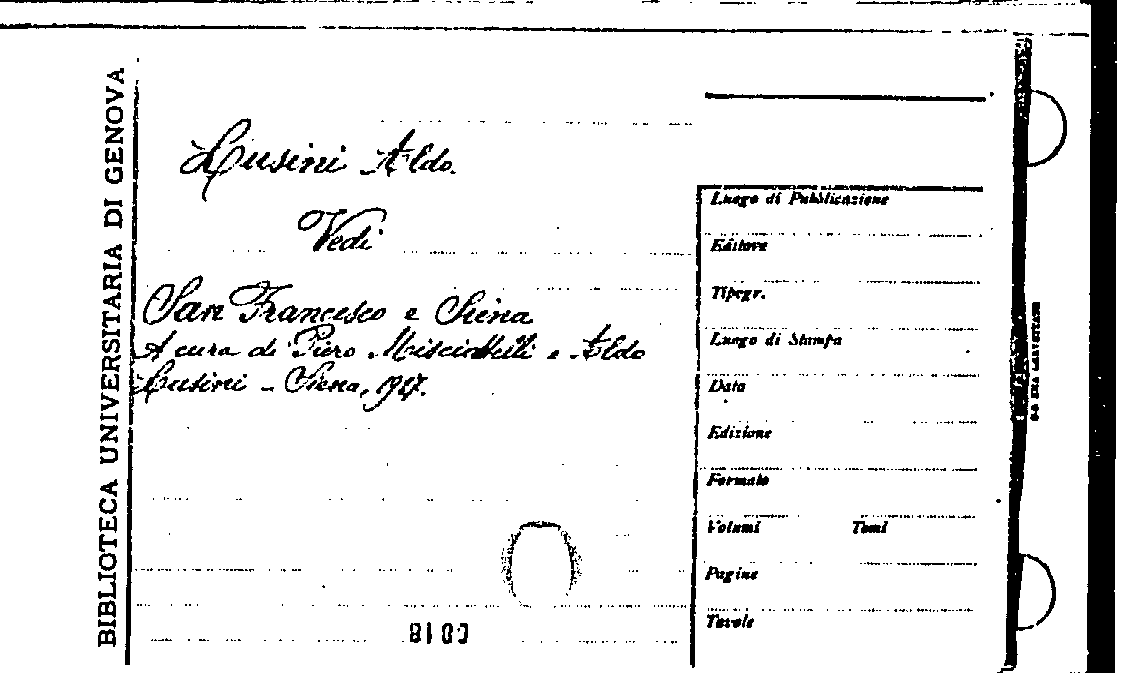 BIBLIOTECA UNIVERSITARIA DI GENOVA
Lusini Aldo.
Vedi
San Francesco e Siena
A cura di Piero Misciattelli e Aldo
Lusini - Siena, 1927.
Luogo di Pubblicazione
Editore
Tipogr.
Luogo di Stampa
Data
Edizione
Formato
Volumi Tomi
Pagine
Tavole